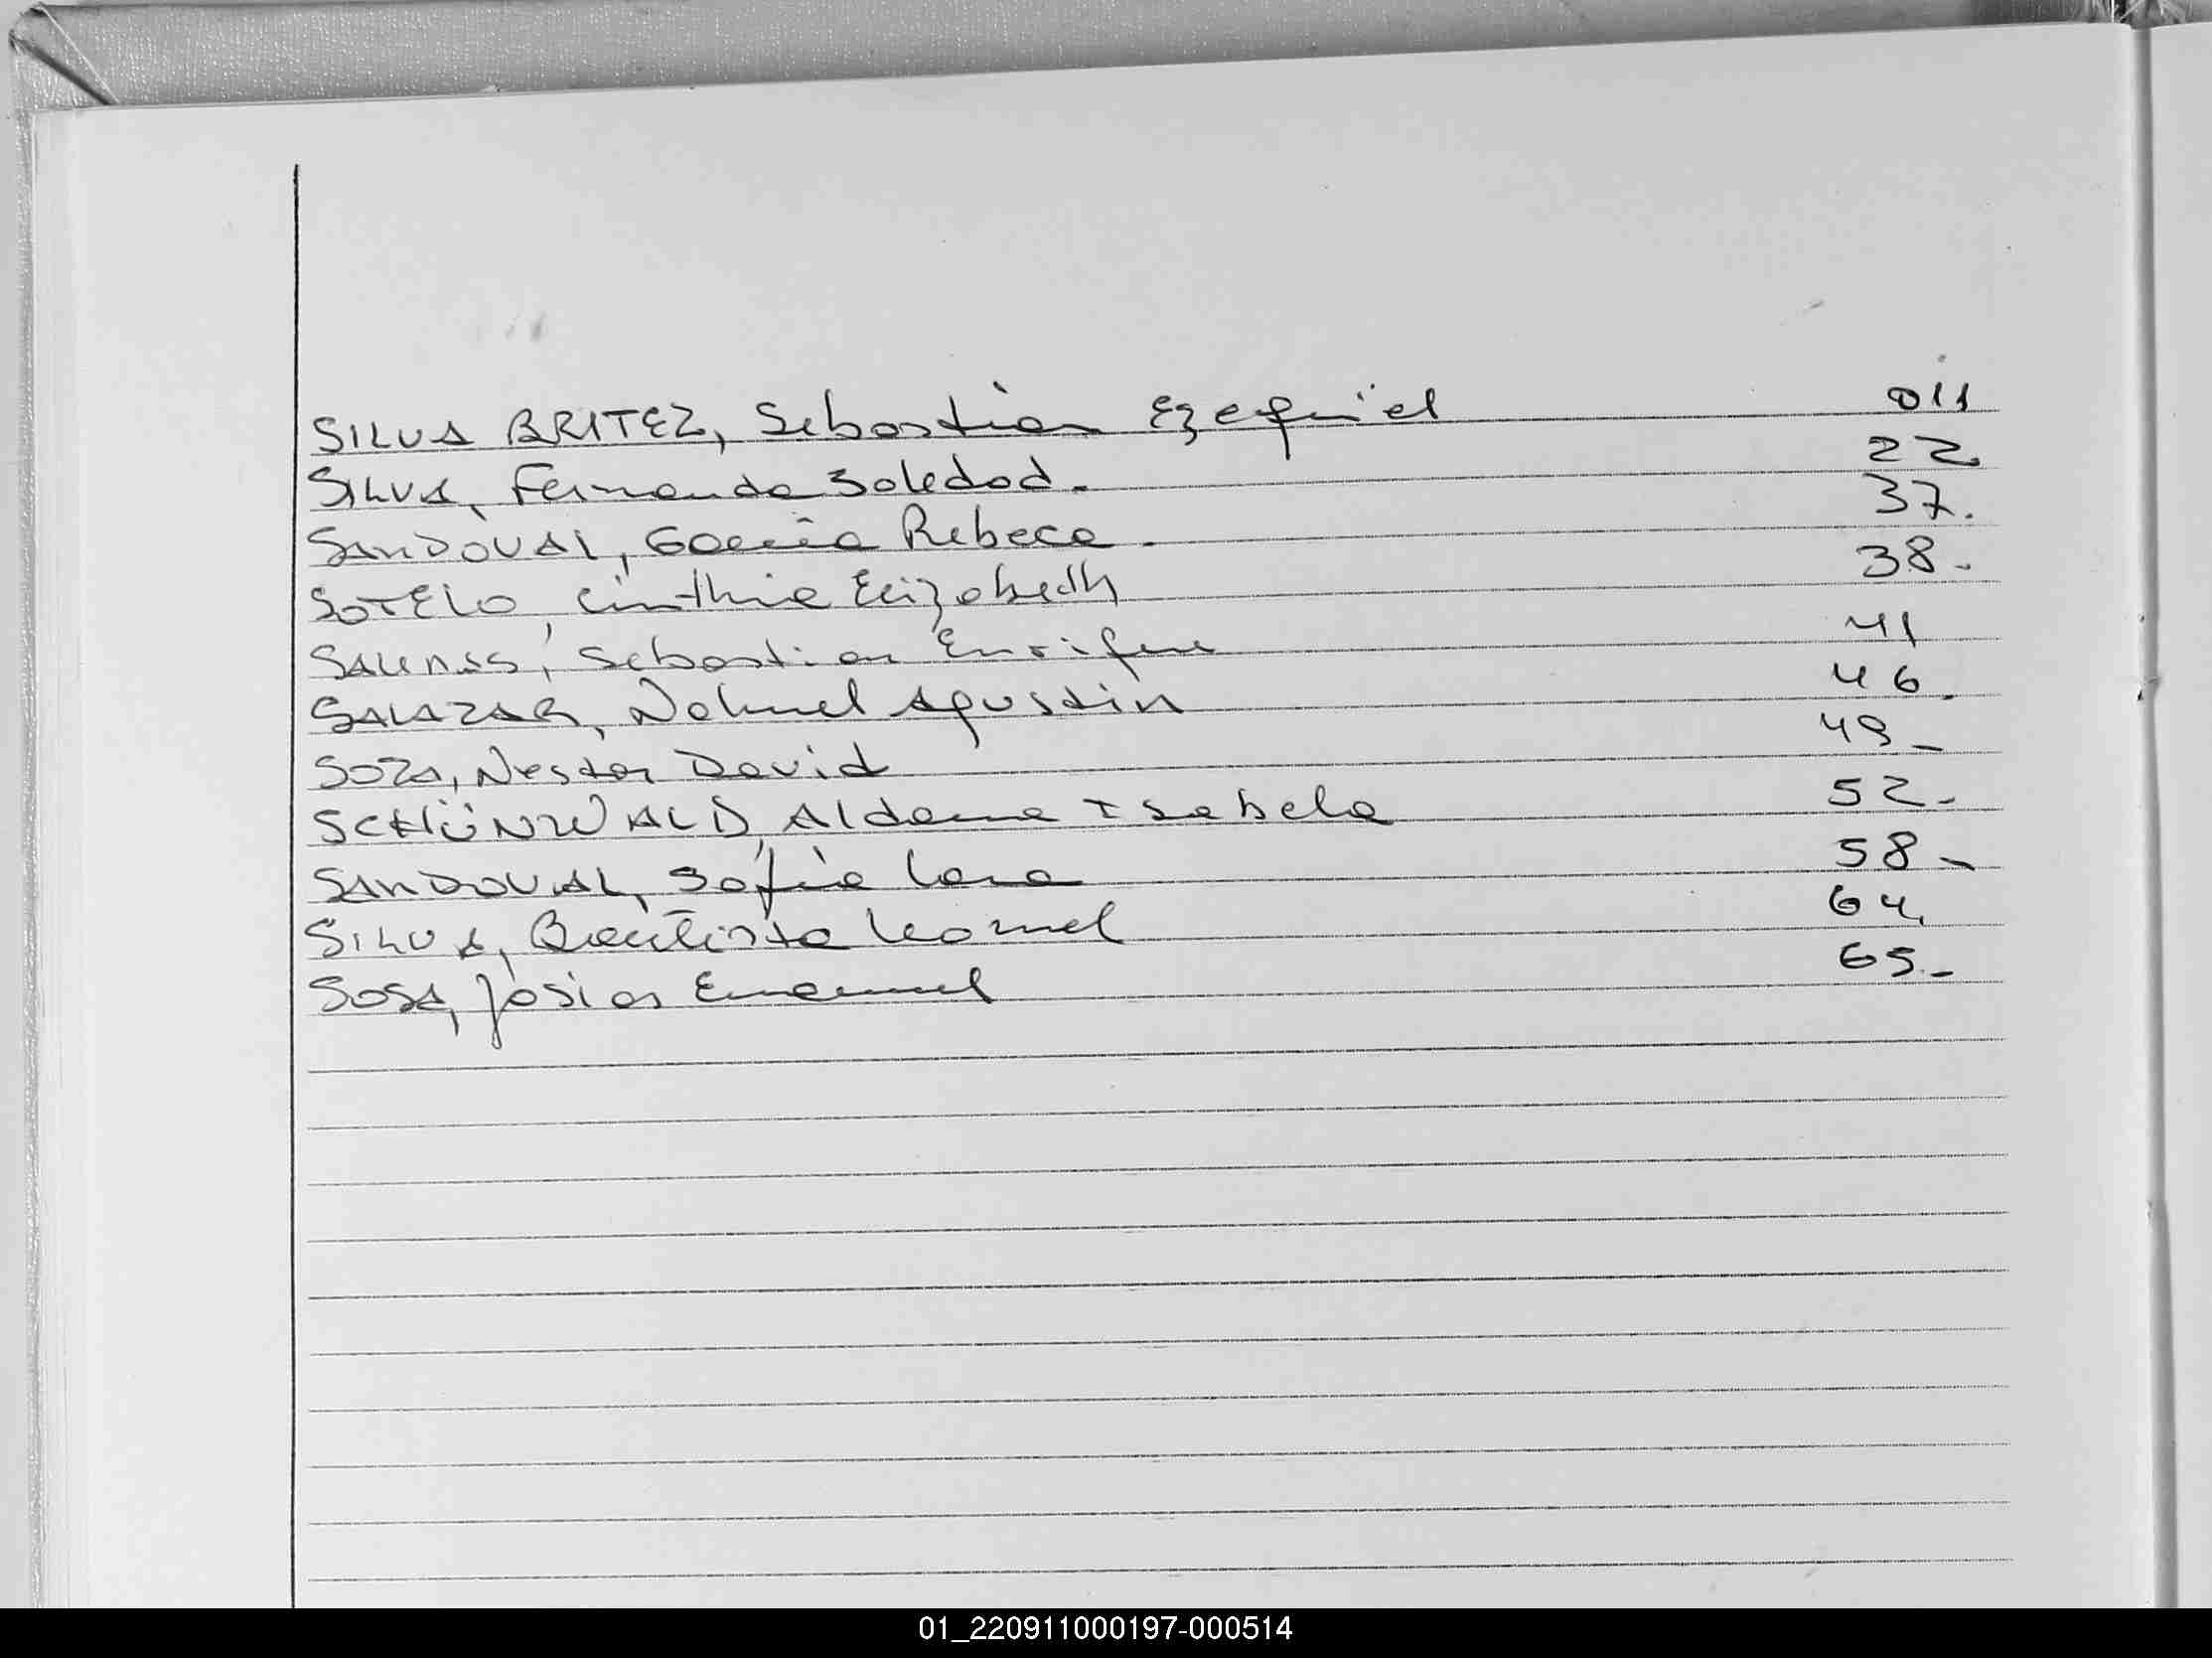 SILVA BRITEZ, Sebastián Ezequiel 011
SILVA, Fernanda Soledad. 22.
SANDOVAL, Rebeca. 37.
SOTELO, Cinthia Elizabeth 38.
SALINAS, Sebastian Enrique 41
SALAZAR, Nahuel Agustin 46.
SOZA, Nestor David 49_
SCHÜNWALD, Aldana Isabela 52.
SANDOVAL, Sofia Lara 58_
SILVA, Bautista Leonel 64.
SOSA, Josias Emanuel 65._
01_220911000197-000514